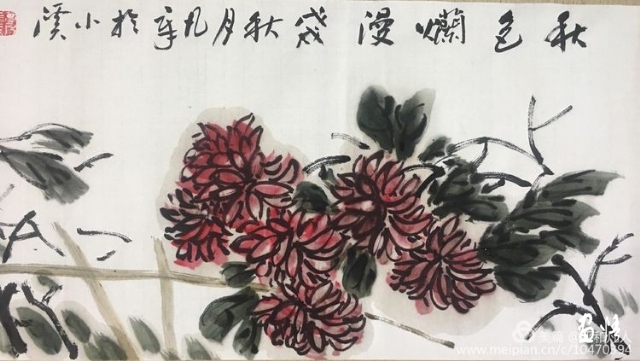 秋色爛漫 戊戌秋月 於小溪
美篇
www.meipian.cn/c/10470594